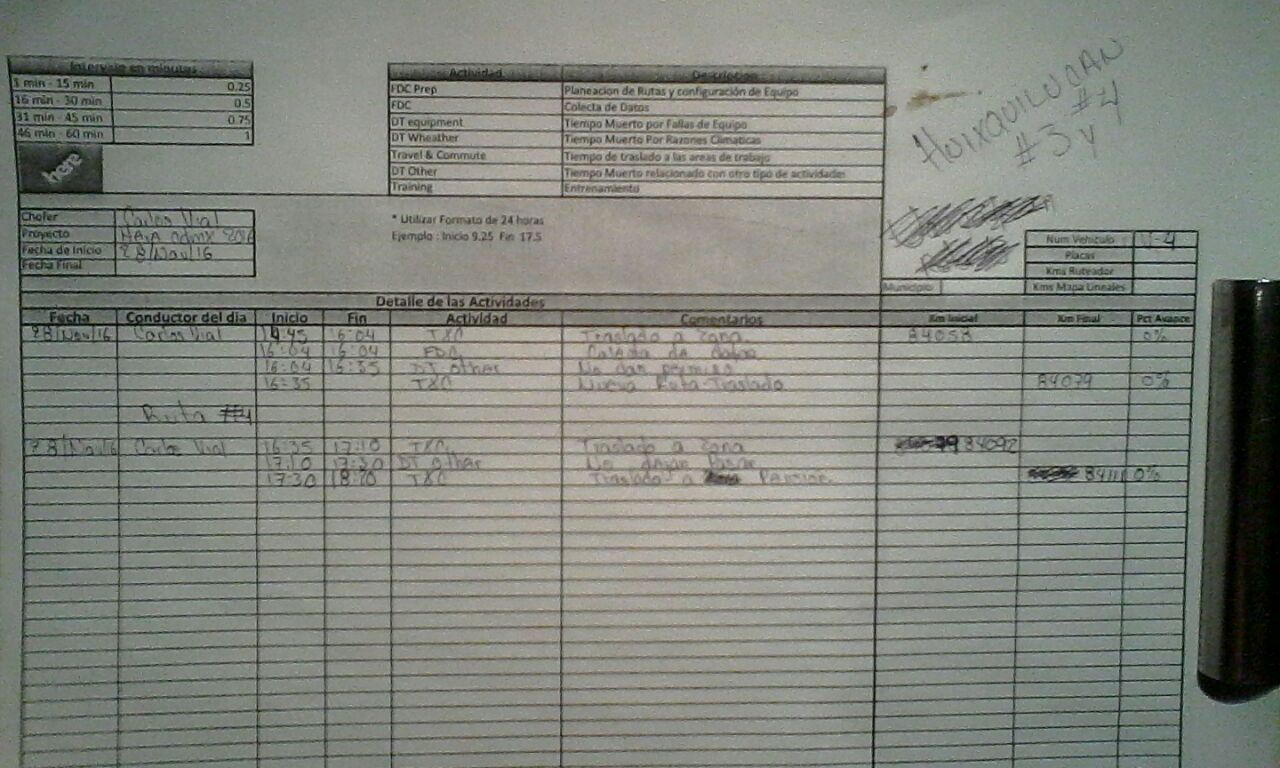 Intervalo en minutos
1 min - 15 min 0.25
16 min - 30 min 0.5
31 min - 45 min 0.75
46 min - 60 min 1
here
Actividad Descripcion
FDC Prep Planeacion de Rutas y configuración de Equipo
FDC Colecta de Datos
DT equipment Tiempo Muerto por Fallas de Equipo
DT Wheather Tiempo Muerto Por Razones Climaticas
Travel & Commute Tiempo de traslado a las areas de trabajo
DT Other Tiempo Muerto relacionado con otro tipo de actividades
Training Entrenamiento
HUIXQUILUCAN
#3 y #4
Chofer Carlos Vial
Proyecto
Fecha de Inicio 28/Nov/16
Fecha Final
* Utilizar Formato de 24 horas
Ejemplo : Inicio 9.25 Fin 17.5
Num Vehiculo U-4
Placas
Kms Ruteador
Municipio Kms Mapa Lineales
Detalle de las Actividades
Fecha Conductor del dia Inicio Fin Actividad Comentarios Km Inicial Km Final Pct Avance
28/Nov/16 Carlos Vial 14:45 16:04 TXC Traslado a zona 84058 0%
16:04 16:04 FDC Colecta de datos
16:04 16:35 DT other No dan permiso
16:35 TXC Nueva Ruta Traslado 84079 0%
Ruta #4
28/Nov/16 Carlos Vial 16:35 17:10 TXC Traslado a zona 84092
17:10 17:30 DT other No dejan pasar
17:30 18:20 TXC Traslado a 84111 0%